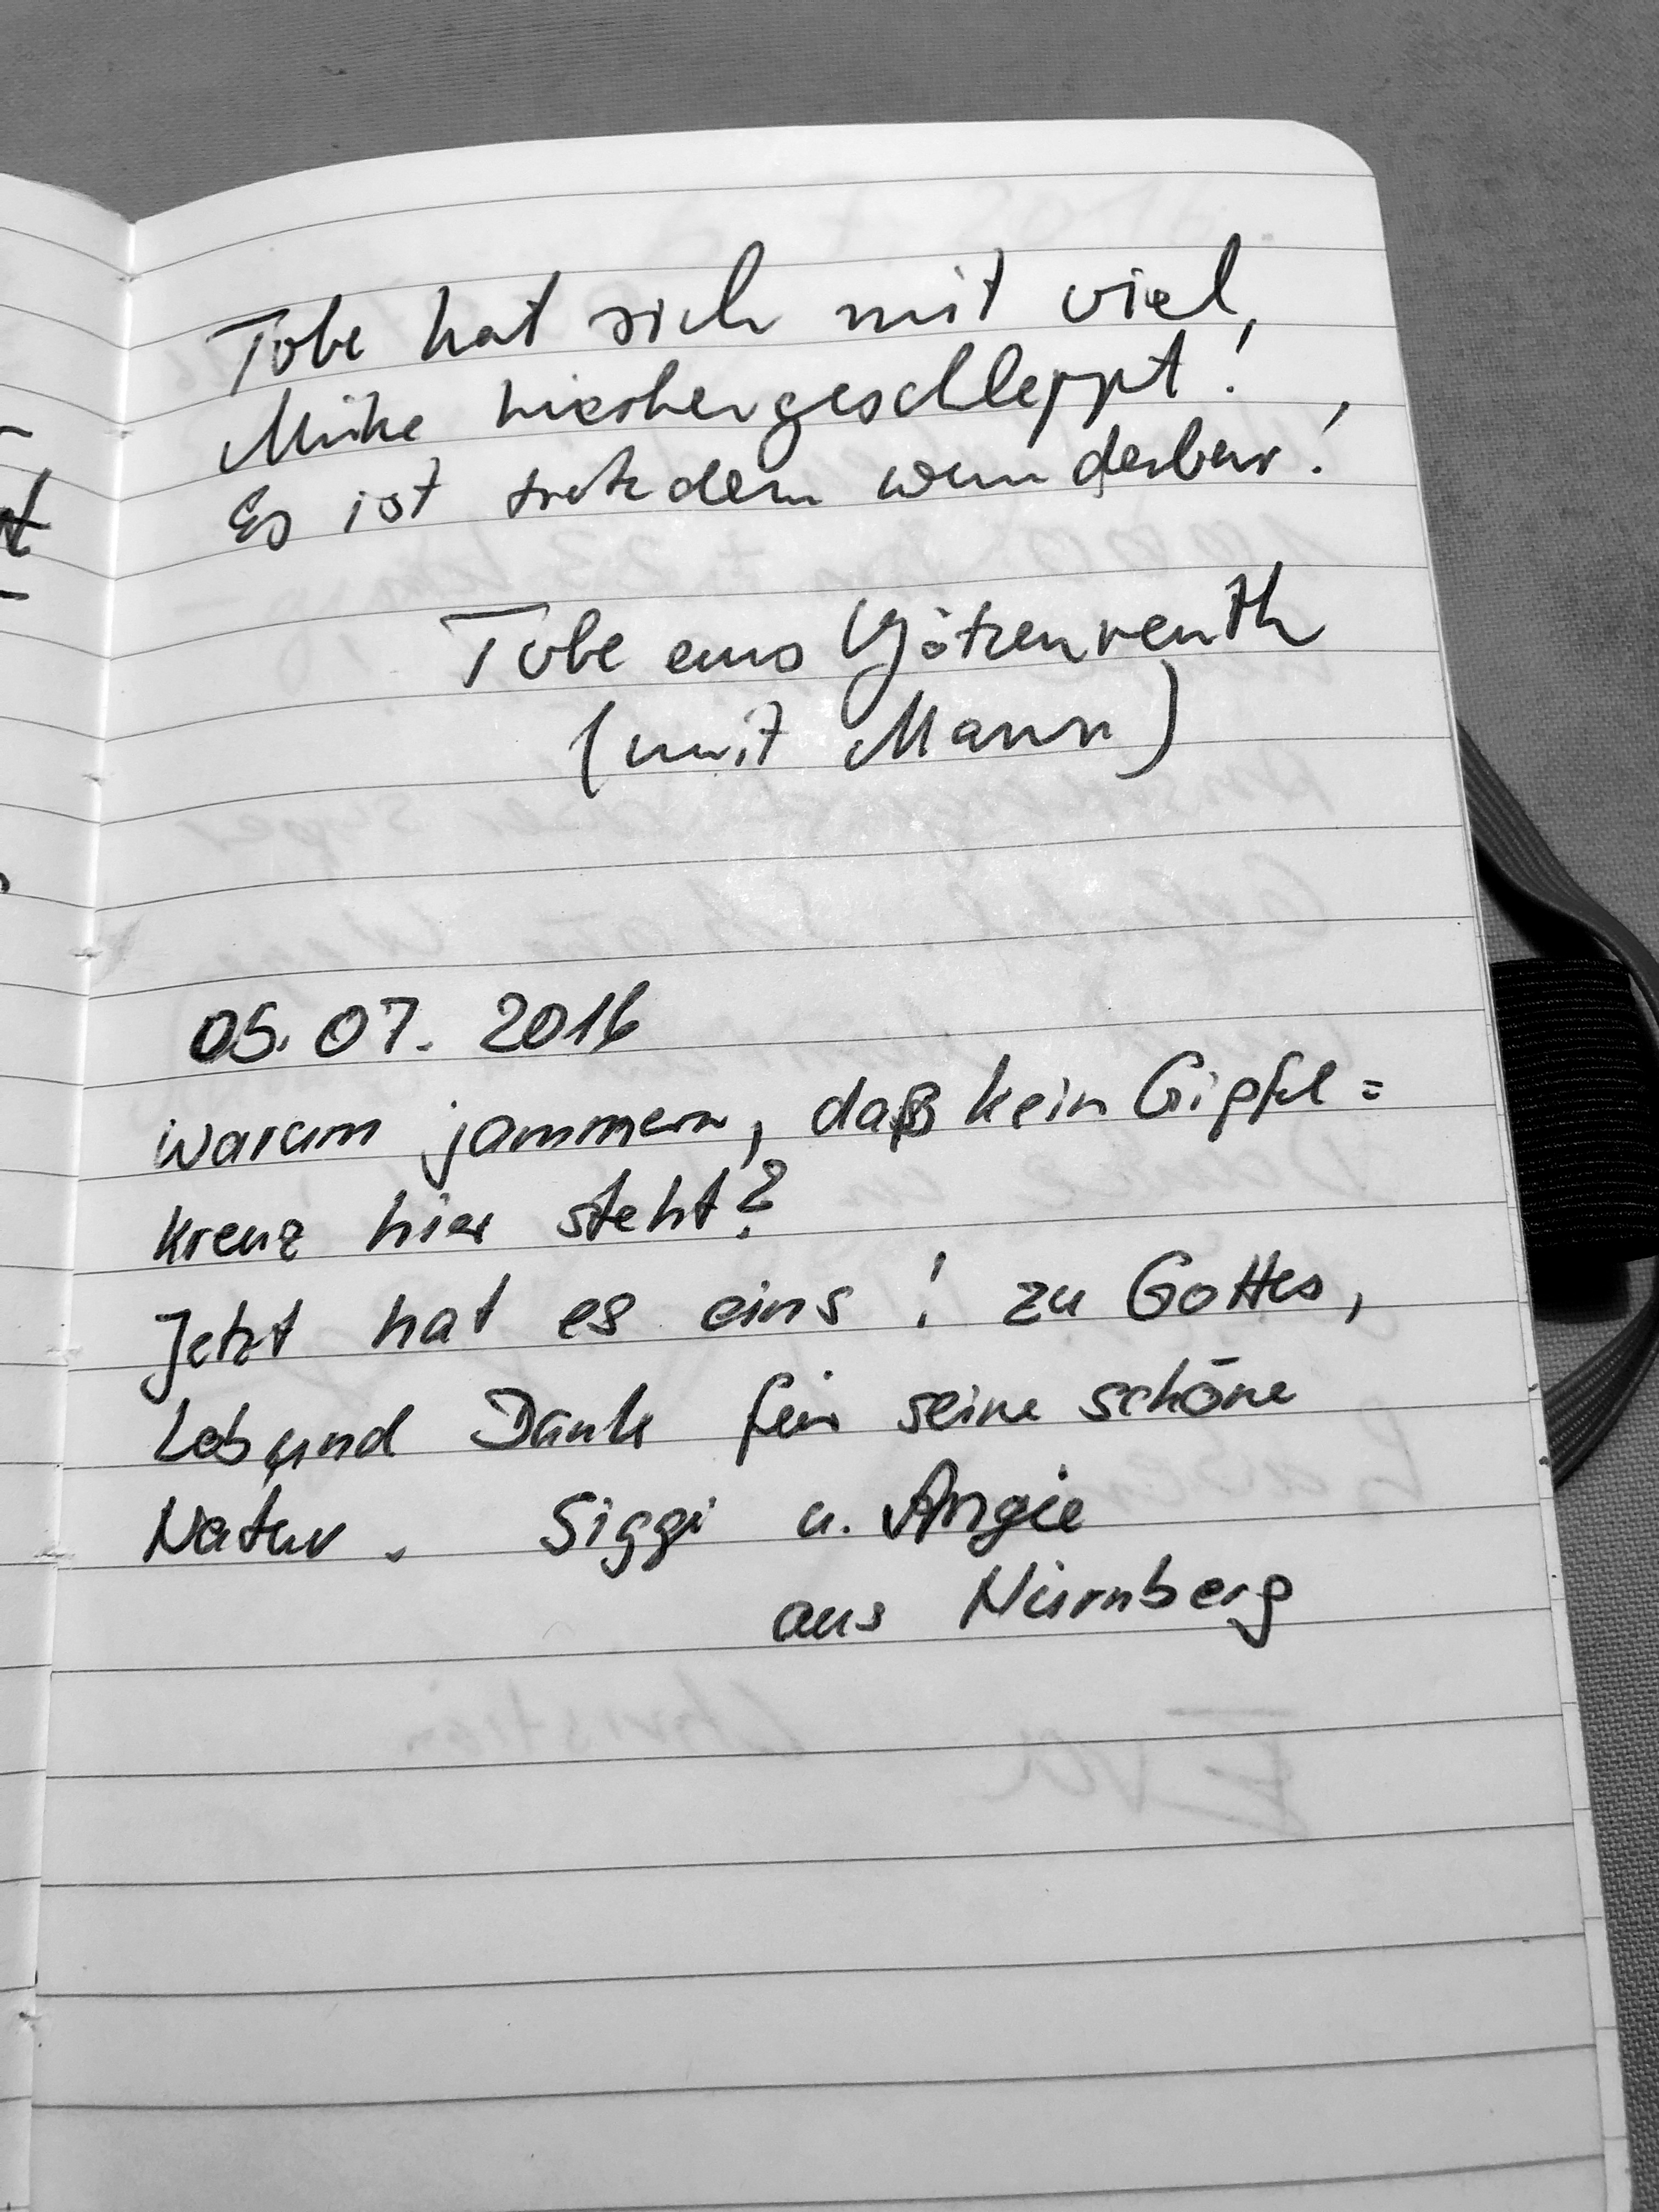 Tobe hat sich mit viel
Mühe hierhergeschleppt!
Es ist trotzdem wunderbar!
Tobe aus Götzenreuth
(mit Mann)
05.07.2016
Warum jammern, daß kein Gipfel=
Kreuz hier steht?
Jetzt hat es eins! zu Gottes,
Lob und Dank für seine schöne
Natur. Siggi u. Angie
aus Nürnberg